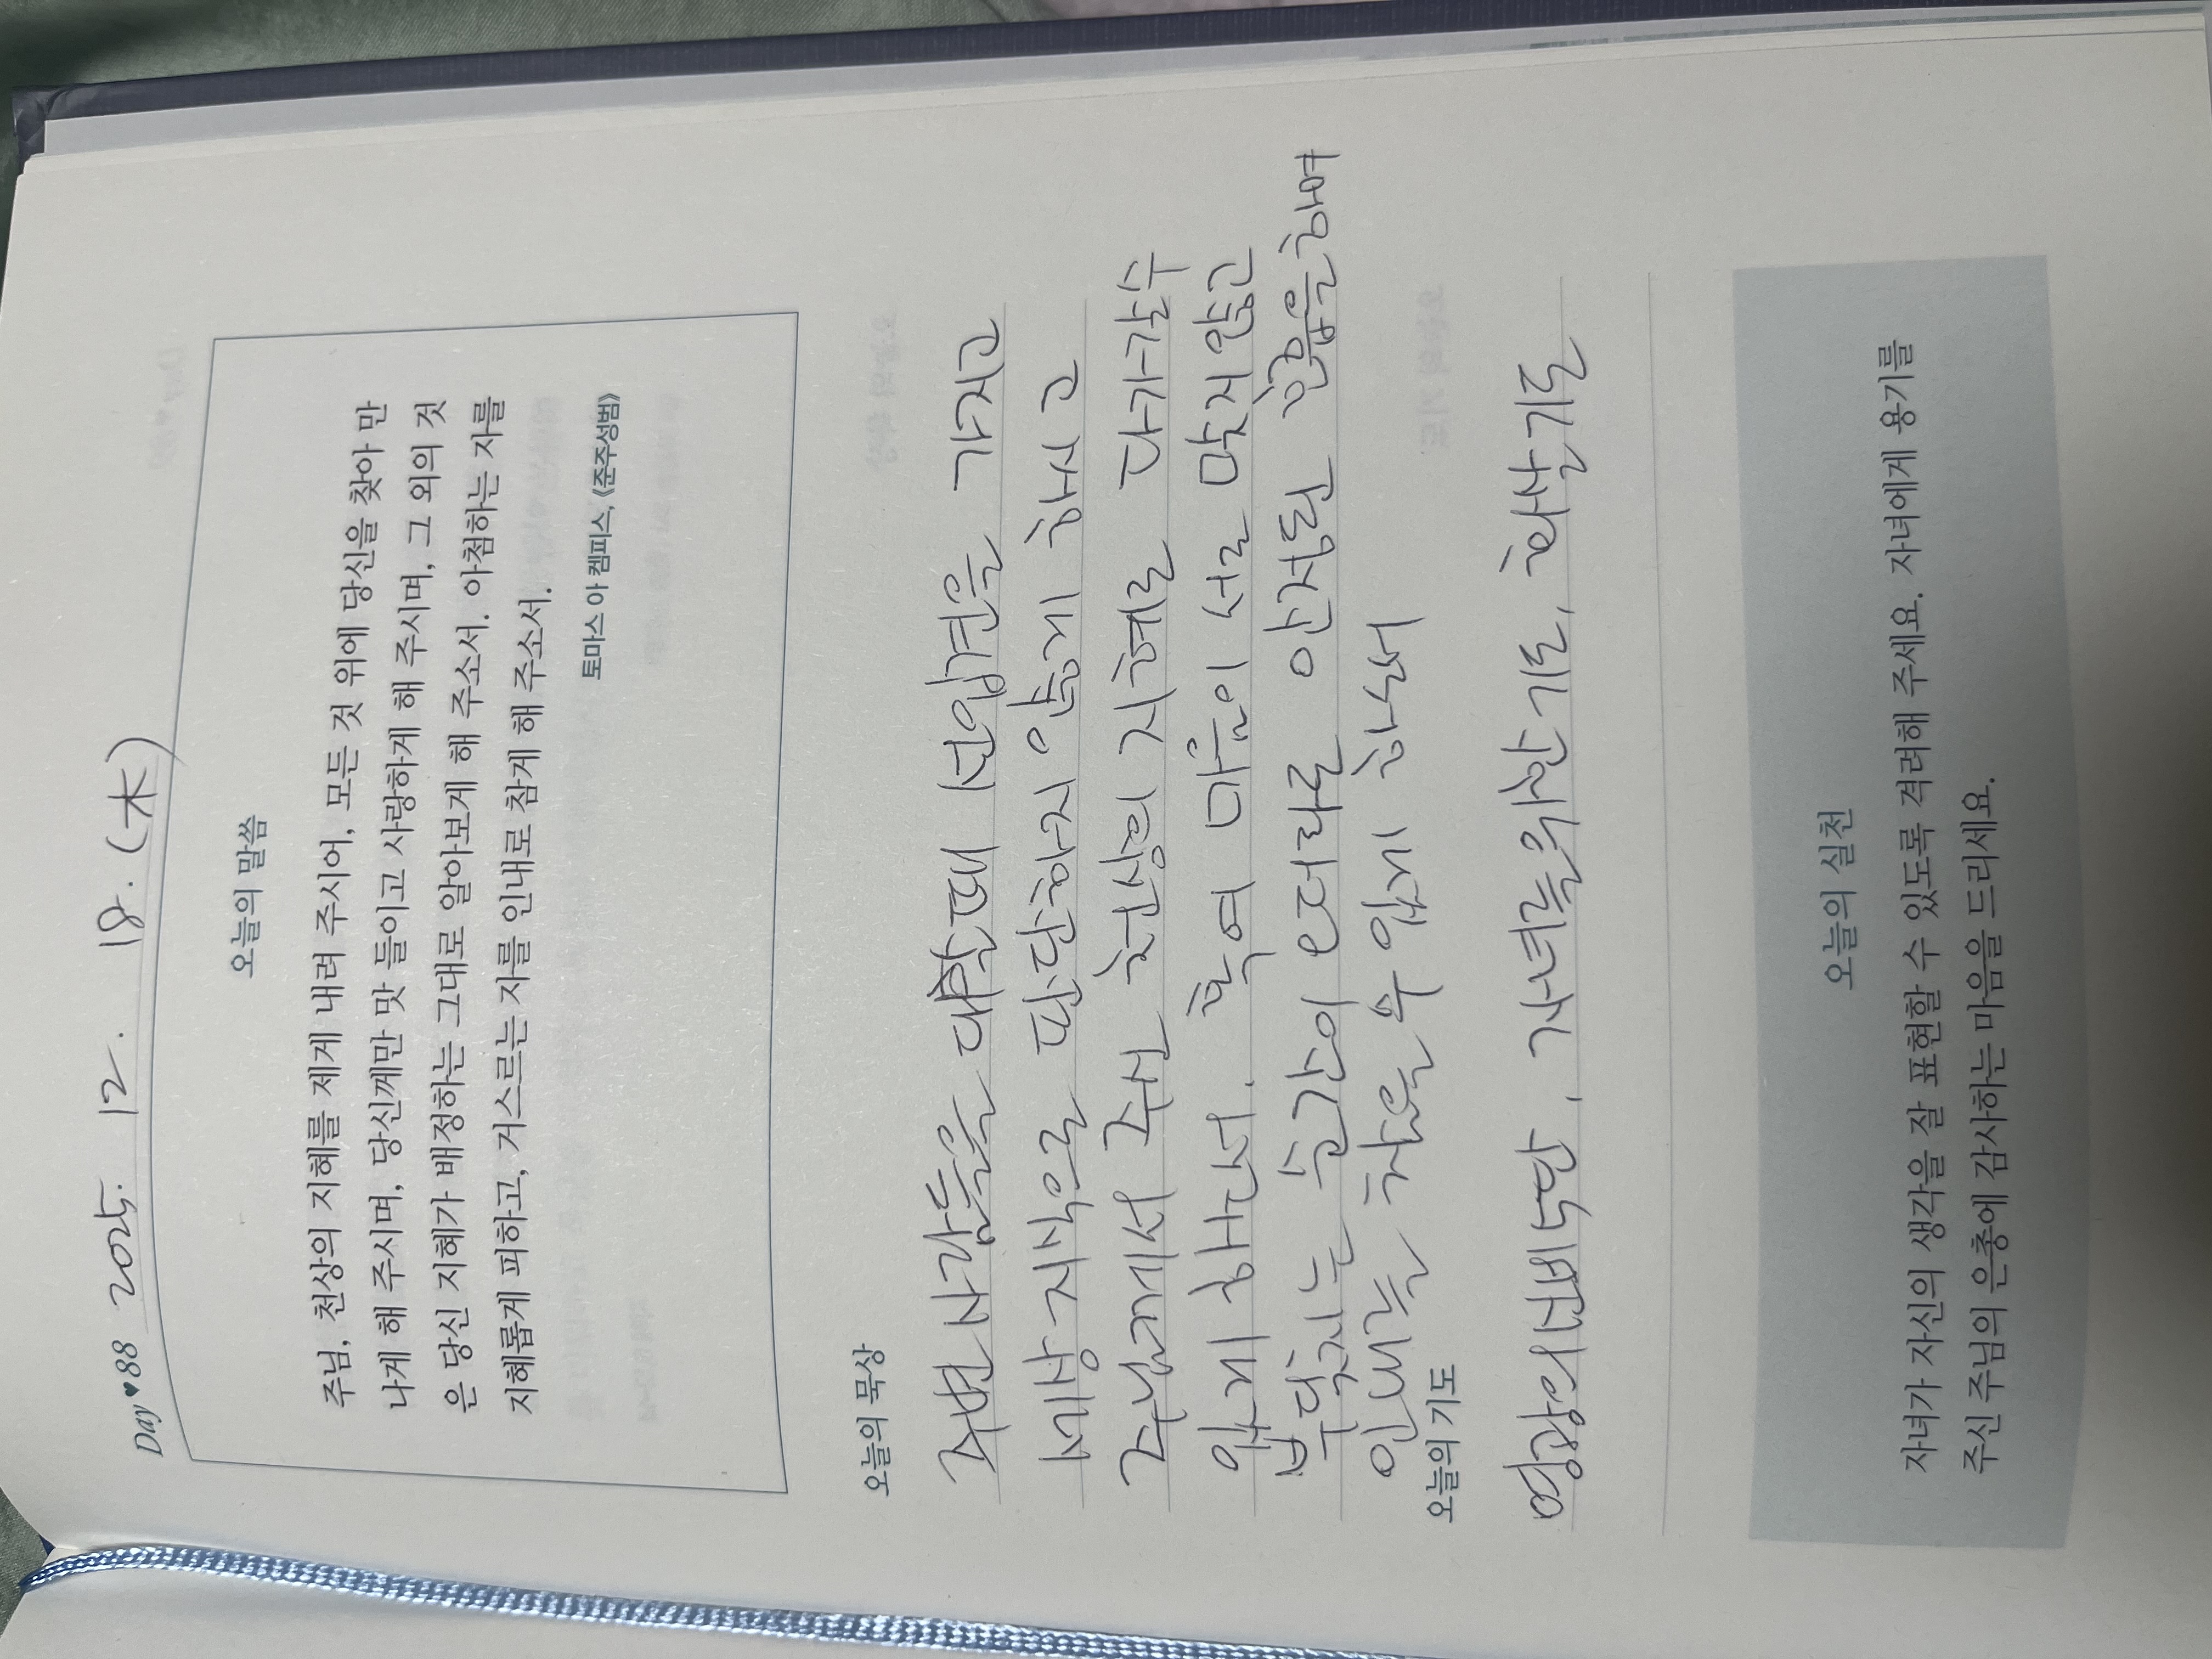 Day ♥88 2025. 12. 18. (木)
오늘의 말씀
주님, 천상의 지혜를 제게 내려 주시어, 모든 것 위에 당신을 찾아 만
나게 해 주시며, 당신께만 맛 들이고 사랑하게 해 주시며, 그 외의 것
은 당신 지혜가 배정하는 그대로 알아보게 해 주소서. 아첨하는 자를
지혜롭게 피하고, 거스르는 자를 인내로 참게 해 주소서.
토마스 아 켐피스, 《준주성범》
오늘의 묵상
주변 사람들을 대할때 선입견을 가지고
세상 지식으로 판단하지 않게 하시고
주님께서 주신 천상의 지혜로 다가갈수
있게 하소서. 혹여 마음이 서로 맞지않고
부딪치는 순간이 오더라도 안정된 호흡을하며
인내를 청할수있게 하소서
오늘의 기도
영광의신비5단, 자녀를위한기도, 화살기도
오늘의 실천
자녀가 자신의 생각을 잘 표현할 수 있도록 격려해 주세요. 자녀에게 용기를
주신 주님의 은총에 감사하는 마음을 드리세요.